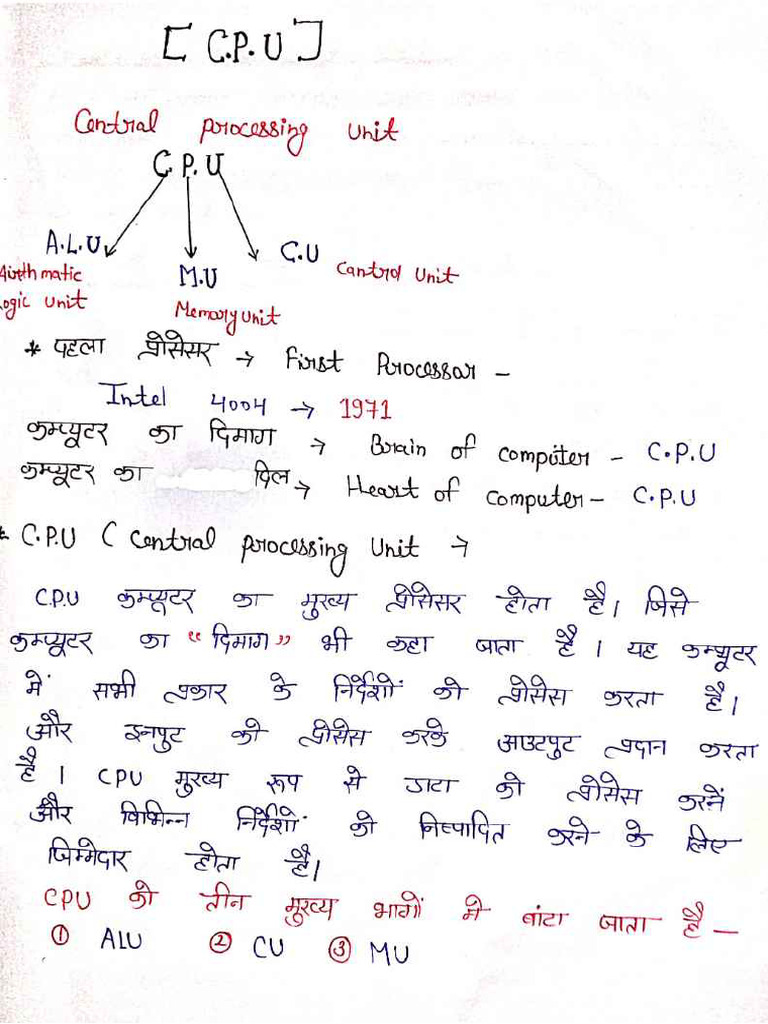 [ C.P.U ]
Central processing unit
C.P.U
A.L.U
Airthmatic
Logic unit
M.U
Memory unit
C.U
Cantrol unit
* पहला प्रोसेसर → First Processor –
Intel 4004 → 1971
कम्प्यूटर का दिमाग → Brain of computer – C.P.U
कम्प्यूटर का दिल → Heart of computer – C.P.U
* C.P.U ( Central processing Unit →
C.P.U कम्प्यूटर का मुख्य प्रोसेसर होता है। जिसे
कम्प्यूटर का "दिमाग" भी कहा जाता है। यह कम्प्यूटर
में सभी प्रकार के निर्देशों को प्रोसेस करता है।
और इनपुट को प्रोसेस करके आउटपुट प्रदान करता
है। CPU मुख्य रूप से डाटा को प्रोसेस करनें
और विभिन्न निर्देशों को निष्पादित करने के लिए
जिम्मेदार होता है।
CPU को तीन मुख्य भागों में बांटा जाता है –
① ALU ② CU ③ MU